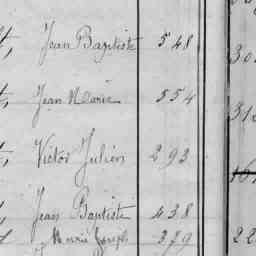 Jean Baptiste 548
Jean Marie 554
Victor Julien 293
Jean Baptiste 438
Marie Joseph 379